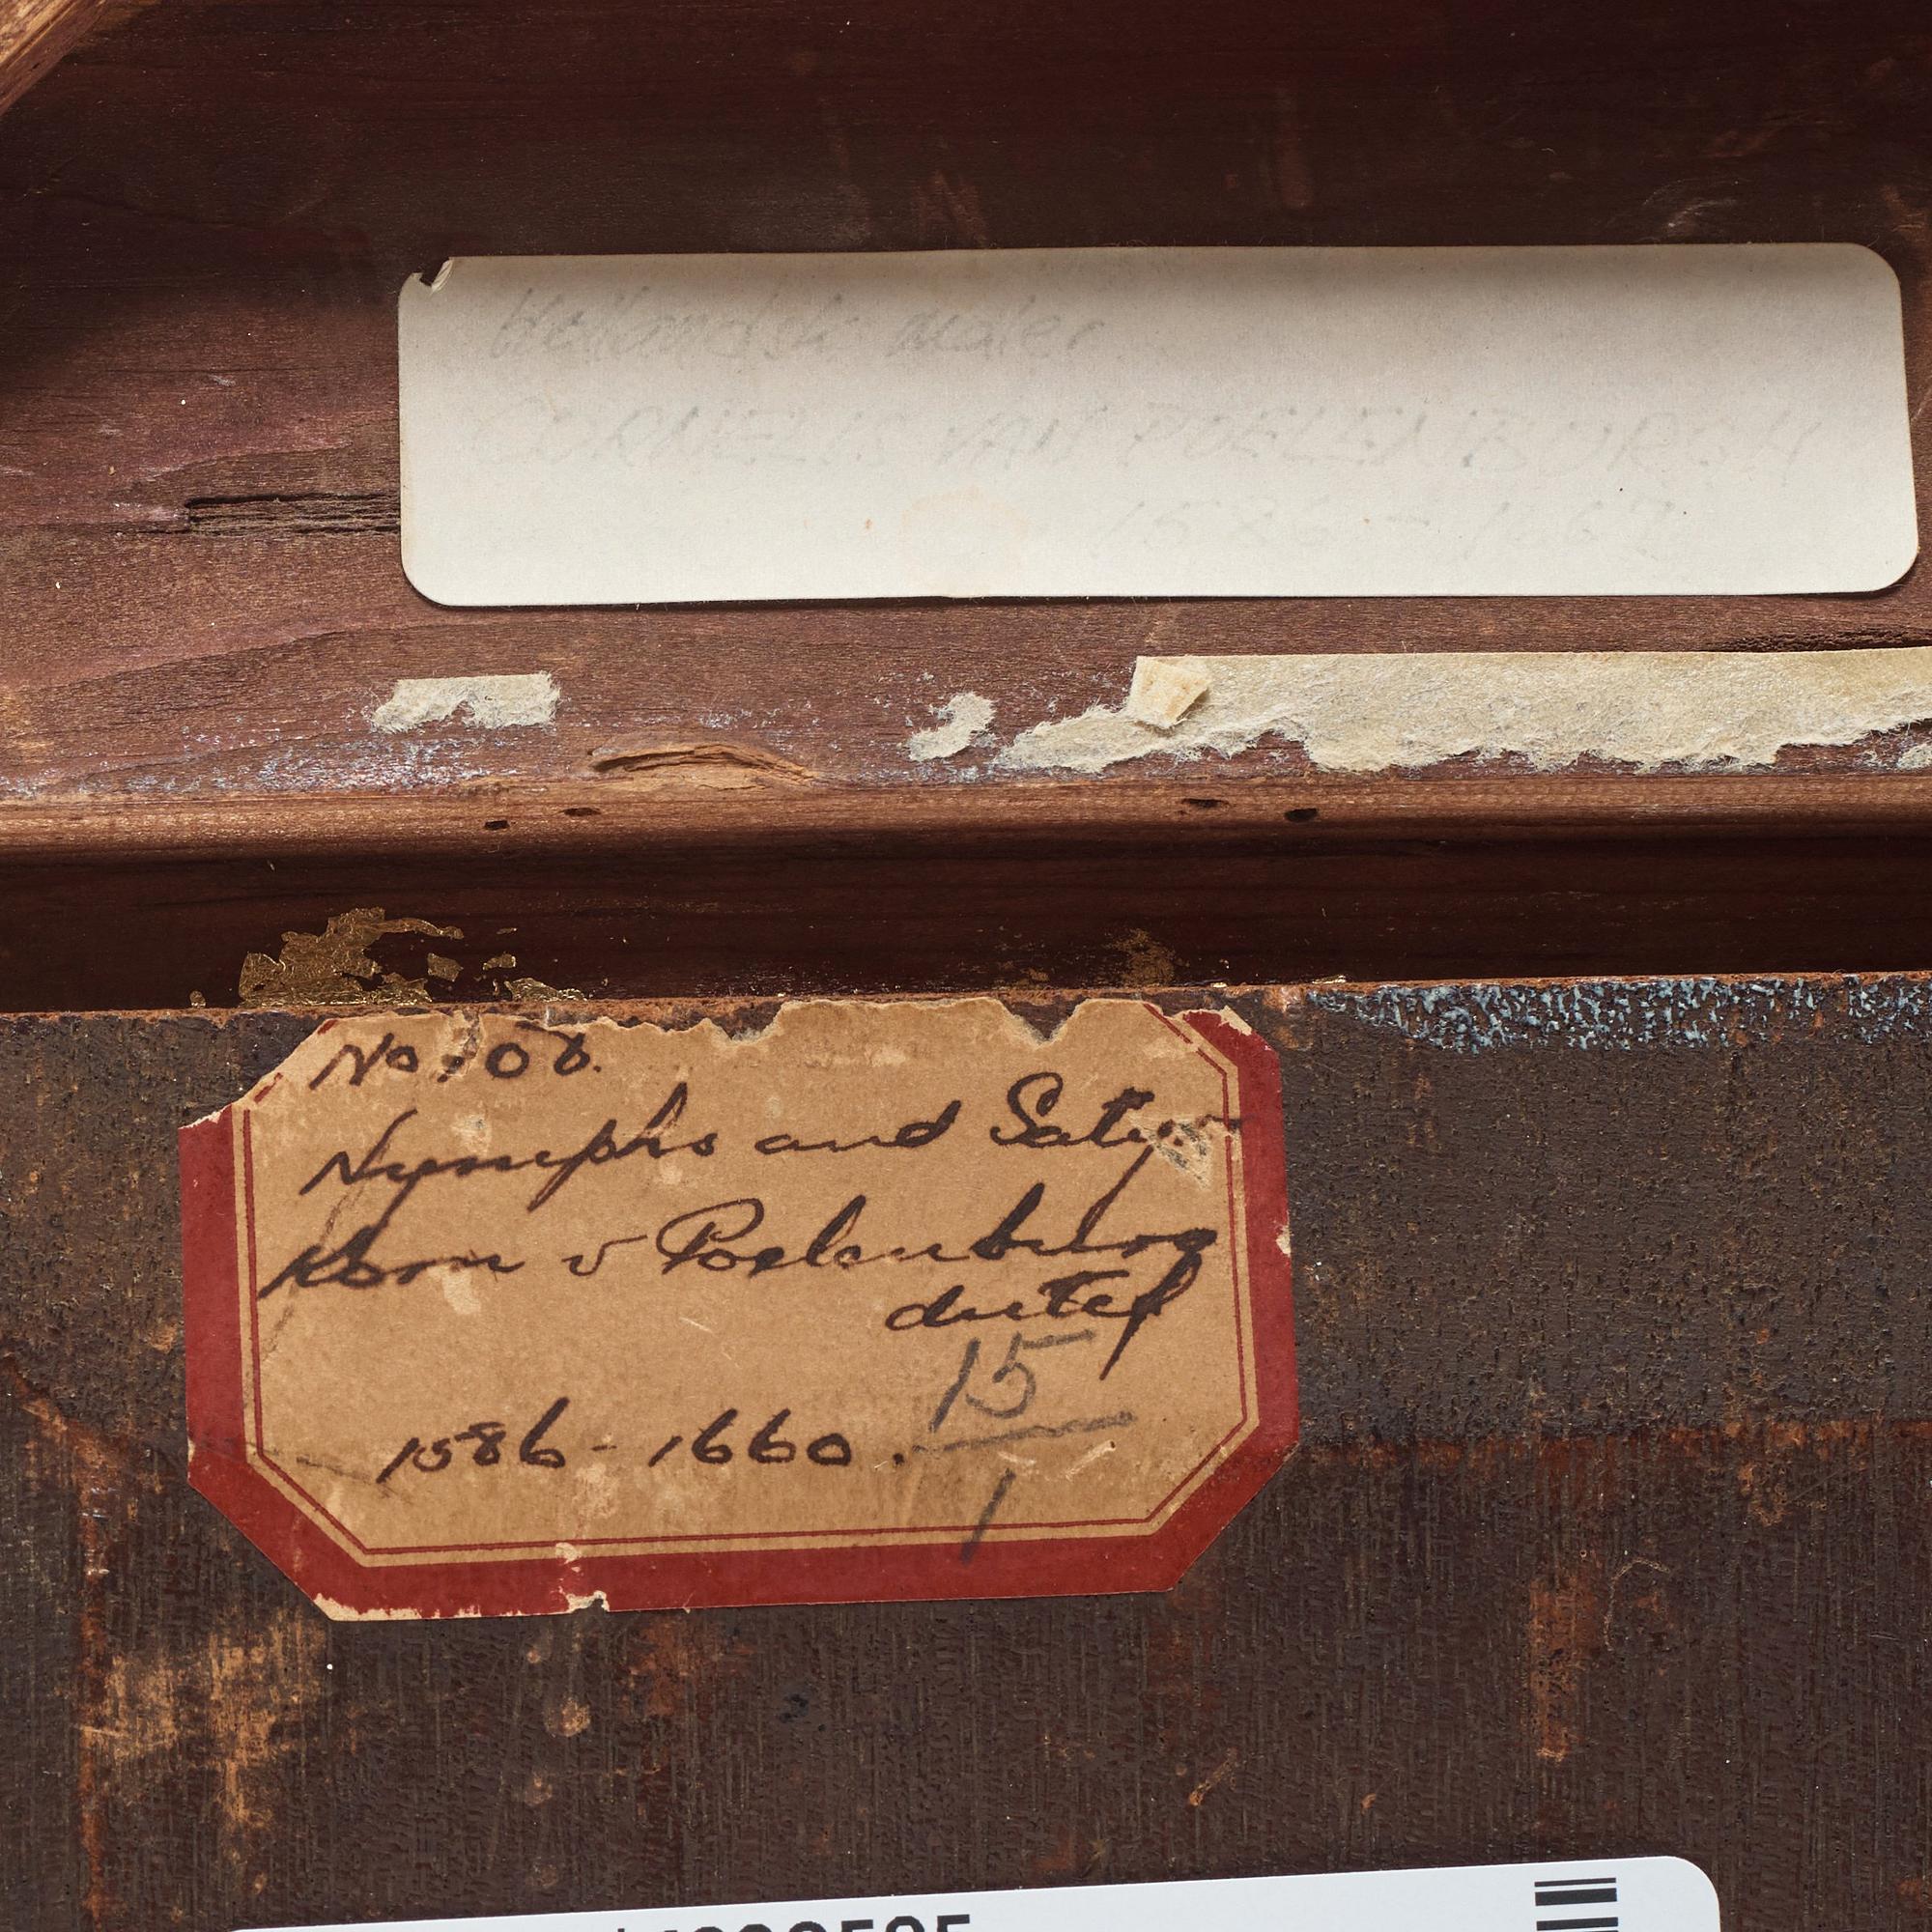 maler
CORNELIS VAN POELENBURGH
1586 - 1667
No.
Nymphs and Satyr
Korn v Poelenburg
dutch
15
1586 - 1660.
1